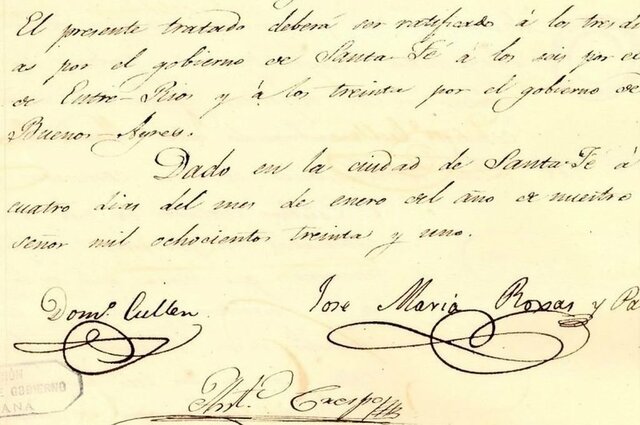 El presente tratado deberá ser ratificado á los tres di
as por el gobierno de Santa-Fé á los seis por el
de Entre-Rios y á los treinta por el gobierno de
Buenos-Ayres.
Dado en la ciudad de Santa-Fé á
cuatro dias del mes de enero del año de nuestro
señor mil ochocientos treinta y uno.
Domº. Cullen
José Maria Roxas y Pa
Antº. Crespo
IÓN
E GOBIERNO
ANÁ